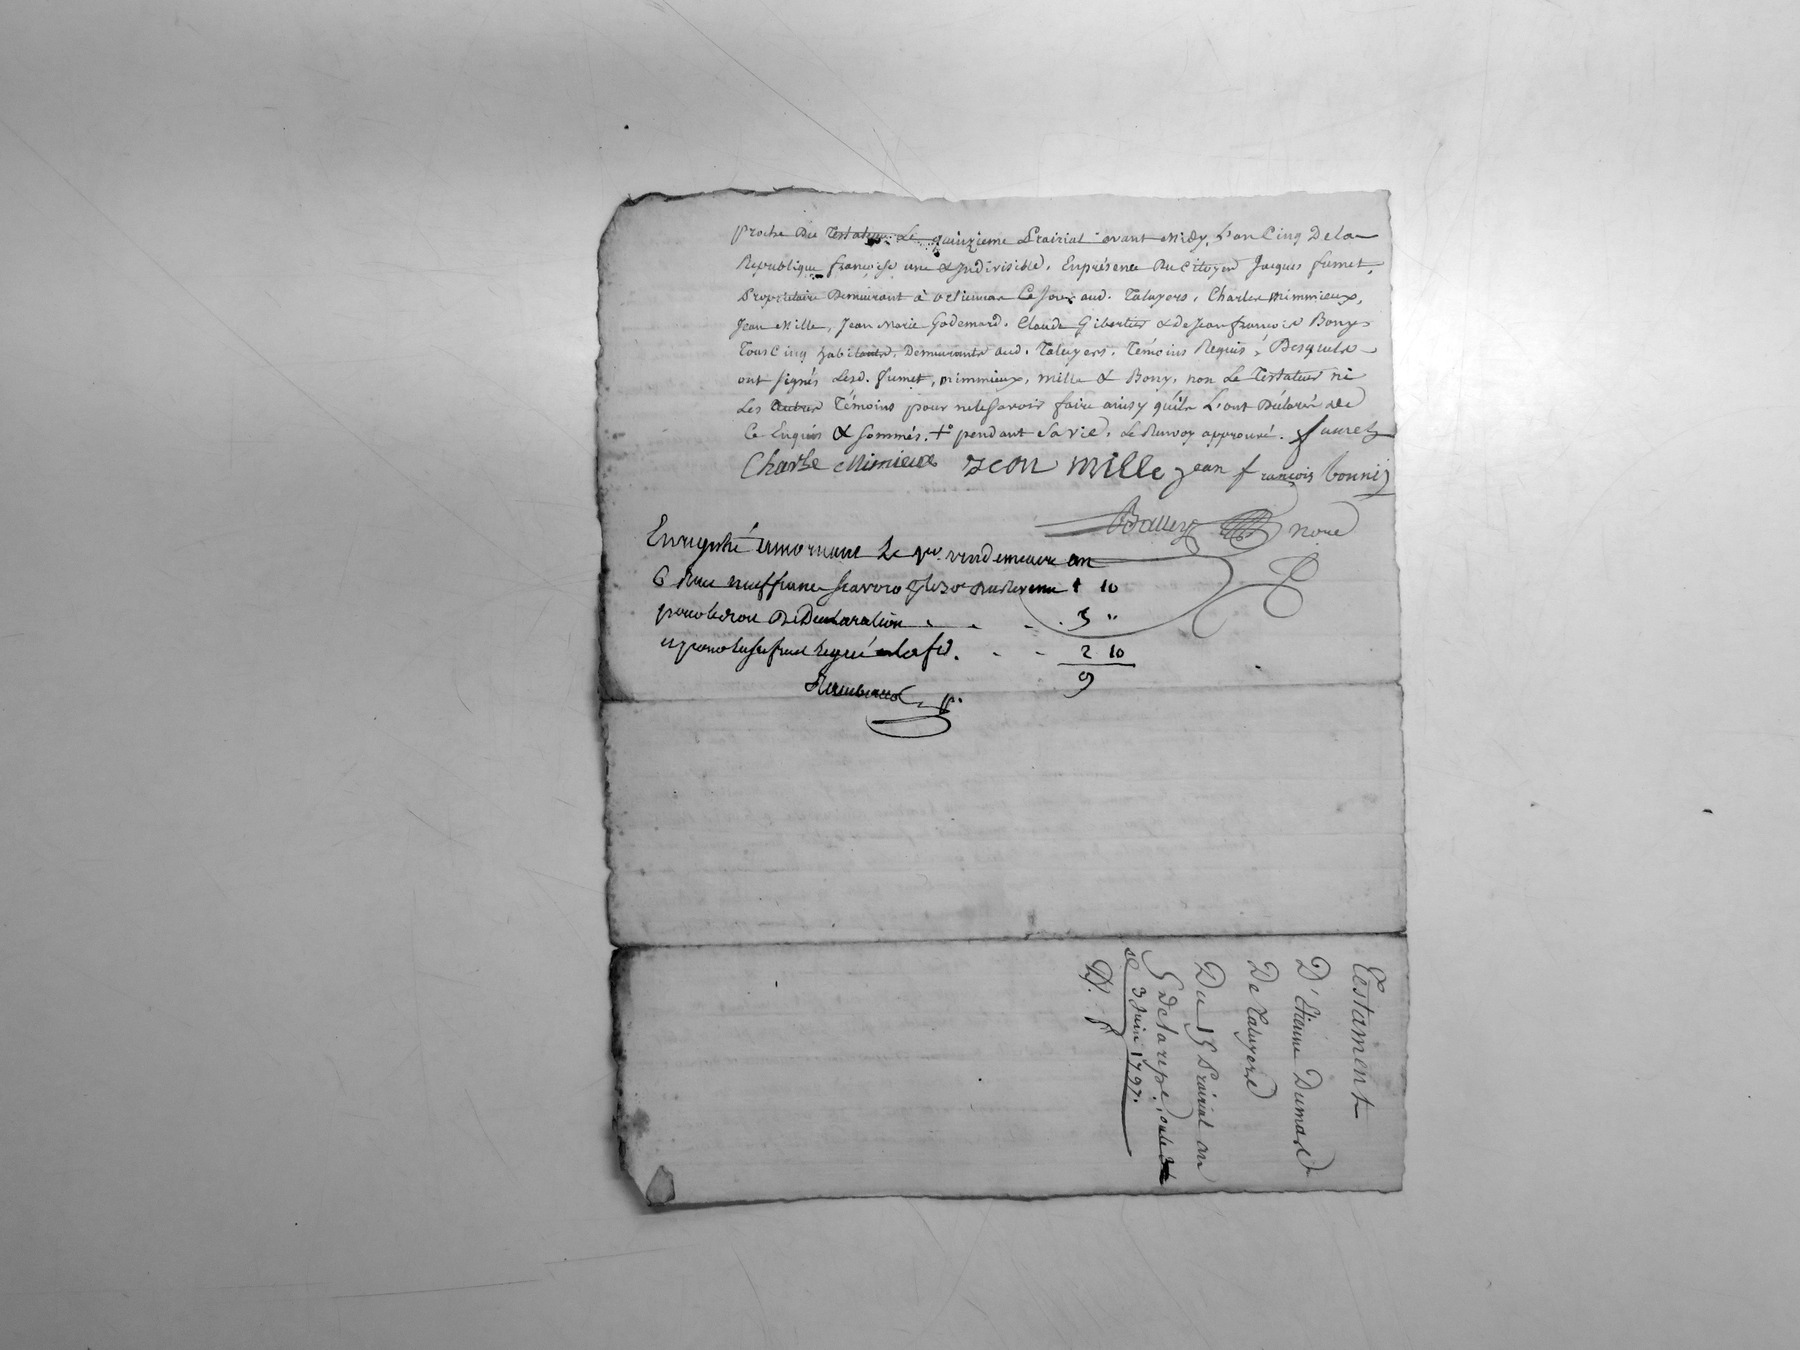 proche Du Testateur. Le quinzieme Prairial avant Midy, L'an Cinq De la
Republique françoise une & Indivisible, En présence Du Citoyen Jacques fumet,
Propriétaire Demeurant à Orlienas Ce Jour aud. Taluyers, Charles Mimmieux,
Jean Mille, Jean Marie Godemard, Claude Gibertier & de Jean françois Bony
Tous Cinq habitants, Demeurants aud. Taluyers, Témoins Requis, Desquels
ont signés Lesd. fumet, mimmieux, mille & Bony, non Le Testateur ni
Les Autres Témoins pour ne le savoir faire ainsy qu'ils L'ont Déclaré de
Ce Enquis & sommés. +° pendant Sa vie, Le Renvoy approuvé.
Charle Mimieux Jean Mille Jean françois bouni
Balley no.re
Enregistré à mornant Le 1er. vendemeaire an
6 Reçu neuf franc savoir 1 10
pour le droit De Declaration . . . 3 "
et pour l'usufruit legué . . 2 10
9
Testament
D'Etienne Dumard
De Taluyers
Du 15 Prairial an
5 de la rep.e. ou le
3 Juin 1797.